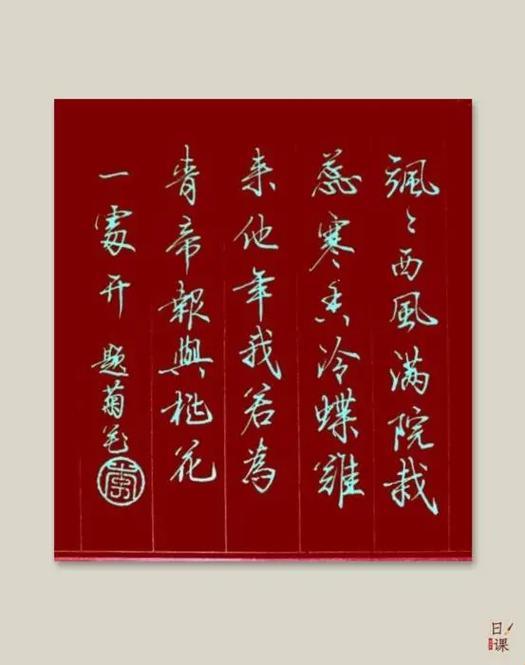 飒〻西風满院栽
蕊寒香冷蝶難
来他年我若為
青帝報與桃花
一處开 题菊花
日课